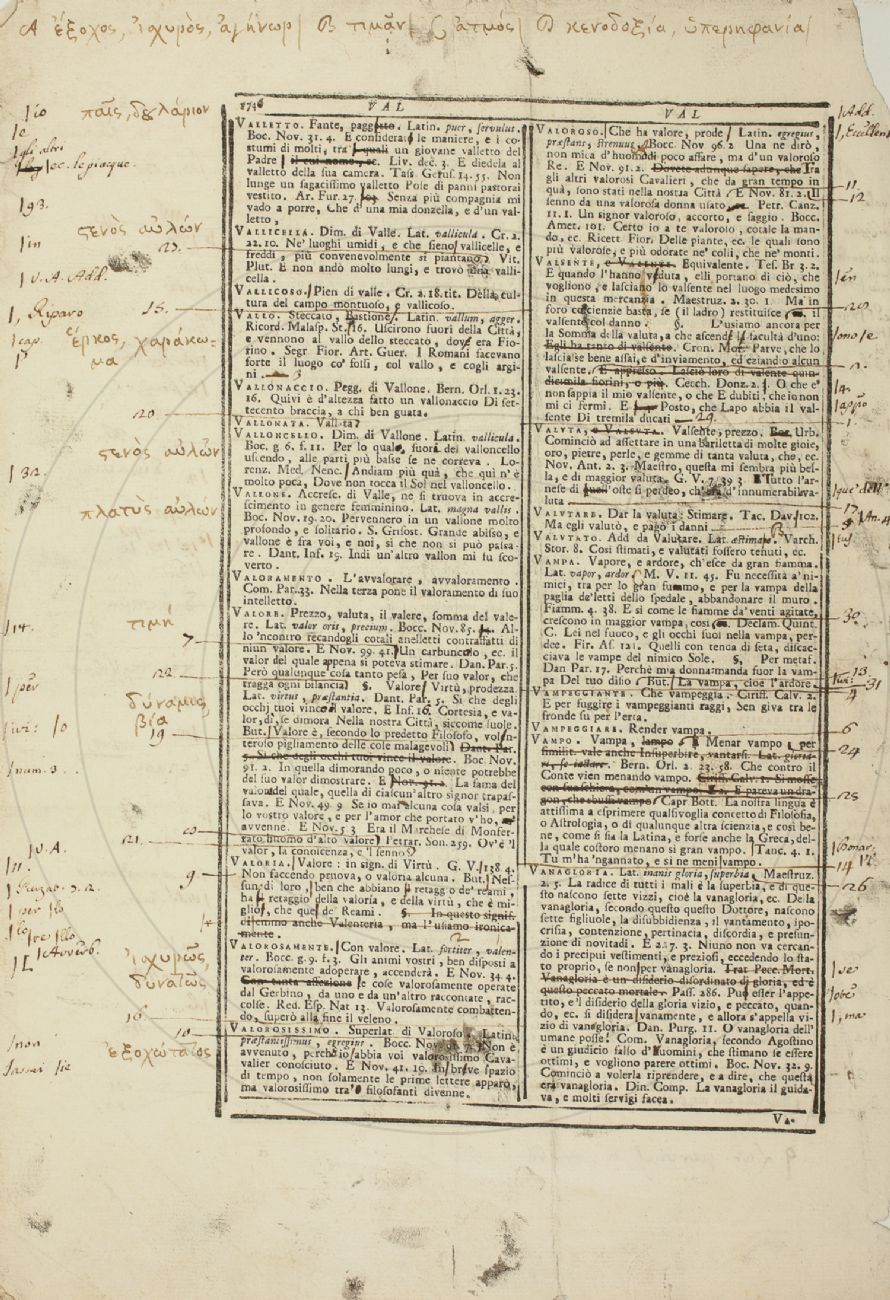 A ἔξοχος, ἰσχυρὸς, ἀγήνωρ | B τιμᾶν | C ἀτμός | D κενοδοξία, ὑπερηφανία
1746 VAL
VALLETTO. Fante, paggetto. Latin. puer, servulus.
Boc. Nov. 31. 4. E considerate le maniere, e i co-
stumi di molti, tra' quali un giovane valletto del
Padre il cui nome, ec. Liv. dec. 3. E diedela al
valletto della sua camera. Tass. Geruf. 14. 55. Non
lunge un sagacissimo valletto Pose di panni pastorai
vestito. Ar. Fur. 27. Senza più compagnia mi
vado a porre, Che d'una mia donzella, e d'un val-
letto,
VALLICELLA. Dim. di Valle. Lat. vallicula. Cr. 2.
22. 10. Ne' luoghi umidi, e che sieno vallicelle, e
freddi, più convenevolmente si piantano. Vit.
Plut. E non andò molto lungi, e trovò una valli-
cella.
VALLICOSO. Pien di valle. Cr. 2. 18. tit. Della cul-
tura del campo montuoso, e vallicoso.
VALLO. Steccato, Bastione. Latin. vallum, agger.
Ricord. Malasp. St. 16. Uscirono fuori della Città,
e vennono al vallo dello steccato, dove era Fio-
rino. Segr. Fior. Art. Guer. I Romani facevano
forte il luogo co' fossi, col vallo, e cogli argi-
ni.
VALLONACCIO. Pegg. di Vallone. Bern. Orl. 1. 23.
16. Quivi è d'altezza fatto un vallonaccio Di set-
tecento braccia, a chi ben guata.
VALLONATA. Vallata
VALLONCELLO. Dim. di Vallone. Latin. vallicula.
Boc. g. 6. f. 11. Per lo quale, fuori del valloncello
uscendo, alle parti più basse se ne correva. Lo-
renz. Med. Nenc. Andiam più quà, che quì n'è
molto poca, Dove non tocca il Sol nel valloncello.
VALLONE. Accresc. di Valle, ne si truova in accre-
scimento in genere femminino. Lat. magna vallis.
Boc. Nov. 19. 20. Pervennero in un vallone molto
profondo, e solitario. S. Grisost. Grande abisso, e
vallone è fra voi, e noi, si che non si può passa-
re. Dant. Inf. 19. Indi un'altro vallon mi fu sco-
verto.
VALORAMENTO. L'avvalorare, avvaloramento.
Com. Par. 33. Nella terza pone il valoramento di suo
intelletto.
VALORE. Prezzo, valuta, il valere, somma del vale-
re. Lat. valor oris, precium. Bocc. Nov. 85. Al-
lo 'ncontro recandogli cotali anelletti contraffatti di
niun valore. E Nov. 99. 41. Un carbunculo, ec. il
valor del quale appena si poteva stimare. Dan. Par. 5.
Però qualunque cosa tanto pesa, Per suo valor, che
tragga ogni bilancia. §. Valore Virtù, prodezza.
Lat. virtus, præstantia. Dant. Par. 5. Sì che degli
occhj tuoi vinco il valore. E Inf. 16. Cortesia, e va-
lor, dì, se dimora Nella nostra Città, siccome suole.
But. Valore è, secondo lo predetto Filosofo, volen-
teroso pigliamento delle cose malagevoli Dant. Par.
5. Sì che degli occhi tuoi vince il valore. Boc. Nov.
91. 2. In quella dimorando poco, o niente potrebbe
del suo valor dimostrare. E Nov. 91. 2. La fama del
valor del quale, quella di ciascun'altro signor trapas-
sava. E Nov. 49. 9 Se io mai alcuna cosa valsi, per
lo vostro valore, e per l'amor che portato v'ho,
avvenne. E Nov. 5 3 Era il Marchese di Monfer-
rato huomo d'alto valore Petrar. Son. 259. Ov'è 'l
valor, la conoscenza, e 'l senno
VALORIA. Valore: in sign. di Virtù. G. V. 138 4.
Non faccendo penova, o valoria alcuna. But. Nes-
sun di loro, ben che abbiano retaggo de' reami,
ha retaggio della valoria, e della virtù, che è mi-
glior, che quel de' Reami. §. In questo signif.
dicemmo anche Valenteria, ma l'usiamo ironica-
mente.
VALOROSAMENTE. Con valore. Lat. fortiter, valen-
ter. Bocc. g. 9. f. 3. Gli animi vostri, ben disposti a
valorosamente adoperare, accenderà. E Nov. 34 4.
Con tanta affezione le cose valorosamente operate
dal Gerbino, da uno e da un'altro raccontate, rac-
colse. Red. Esp. Nat 13. Valorosamente combatten-
do, superò alla fine il veleno.
VALOROSISSIMO. Superlat. di Valoroso. Latin.
præstantissimus, egregius. Bocc. Nov. Non è
avvenuto, perchè io abbia voi valorosissimo Cava-
valier conosciuto. E Nov. 41. 19. In breve spazio
di tempo, non solamente le prime lettere apparò,
ma valorosissimo tra' filosofanti divenne.
VAL
VALOROSO. Che ha valore, prode Latin. egregius,
præstans, strenuus. Bocc. Nov 96. 2 Una ne dirò,
non mica d'huomo di poco affare, ma d'un valoroso
Re. E Nov. 91. 2. Dovete adunque sapere, che Tra
gli altri valorosi Cavalieri, che da gran tempo in
quà, sono stati nella nostra Città E Nov. 81. 2. Il
senno da una valorosa donna usato Petr. Canz.
11. 1. Un signor valoroso, accorto, e saggio. Bocc.
Amet. 101. Certo io a te valoroio, cotale la man-
do, ec. Ricett Fior. Delle piante, ec. le quali sono
più valorose, e più odorate ne' colli, che ne' monti.
VALSENTE, e VALENTE. Equivalente. Tes. Br 3. 2.
E quando l'hanno veduta, elli portano di ciò, che
vogliono, e lasciano lo valsente nel luogo medesimo
in questa mercanzia. Maestruz. 2. 30. 1. Ma in
foro coscienzie basta, se (il ladro) restituisce il
valsente col danno. §. L'usiamo ancora per
la Somma della valuta, a che ascende la facultà d'uno:
Egli ha tanto di valsente. Cron. Mor. Parve, che lo
lasciasse bene assai, e d'inviamento, ed eziando alcun
valsente. E appresso. Lasciò loro di valente quin-
dicimila fiorini, o più. Cecch. Donz. 2. O che e'
non sappia il mio valsente, o che E dubiti: che io non
mi ci fermi. E Posto, che Lapo abbia il val-
sente Di tremila ducati 29
VALUTA, e VALSUTA. Valsente, prezzo. Boc. Urb.
Cominciò ad assettare in una bariletta di molte gioie,
oro, pietre, perle, e gemme di tanta valuta, che, ec.
Nov. Ant. 2. 3. Maestro, questa mi sembra più bel-
la, e di maggior valuta. G. V. 7. 39 3. Tutto l'ar-
nese di quell'oste si perdeo, ch' d'innumerabil va-
luta
VALUTARE. Dar la valuta: Stimare. Tac. Dav. 102.
Ma egli valutò, e pagò i danni
VALUTATO. Add da Valutare. Lat. æstimatus. Varch.
Stor. 8. Così stimati, e valutati fossero tenuti, ec.
VAMPA. Vapore, e ardore, ch'esce da gran fiamma.
Lat. vapor, ardor. M. V. 11. 45. Fu necessità a' ni-
mici, tra per lo gran fummo, e per la vampa della
paglia de' letti dello spedale, abbandonare il muro.
Fiamm. 4. 38. E sì come le fiamme da' venti agitate,
crescono in maggior vampa, così Declam. Quint.
C. Lei nel fuoco, e gli occhj suoi nella vampa, per-
dee. Fir. As. 121. Quelli con tenda di seta, discac-
ciava le vampe del nimico Sole. §. Per metaf.
Dan Par. 17. Perchè mia donna: manda fuor la vam-
pa Del tuo disio But. La vampa, cioè l'ardore.
VAMPEGGIANTE. Che vampeggia. Ciriff. Calv. 2.
E per fuggire i vampeggianti raggi, Sen giva tra le
fronde su per l'erta.
VAMPEGGIARE. Render vampa.
VAMPO. Vampa, lampo § Menar vampo per
similit. vale anche Insuperbire, vantarsi. Lat. gloria-
ri, se jactare. Bern. Orl. 1. 23. 38. Che contro il
Conte vien menando vampo. Ciriff. Calv. 1. Si mosse
con sua schiera, com'un vampo. E 2. E pareva un dra-
gon, che sbuffi vampo Capr Bott. La nostra lingua è
attissima a esprimere qualsivoglia concetto di Filosofia,
o Astrologia, o di qualunque altra scienzia, e così be-
ne, come si sia la Latina, e forse anche la Greca, del-
la quale costoro menano sì gran vampo. Tanc. 4. 1.
Tu m'ha 'ngannato, e si ne meni vampo.
VANAGLORIA. Lat. inanis gloria, superbia. Maestruz.
2. 5. La radice di tutti i mali è la superbia, e di que-
sto nascono sette vizj, cioè la vanagloria, ec. Della
vanagloria, secondo questo questo Dottore, nascono
sette figliuole, la disubbidienza, il vantamento, ipo-
crisia, contenzione, pertinacia, discordia, e presun-
zione di novitadi. E 2. 7. 3. Niuno non va cercan-
do i precipui vestimenti, e preziosi, eccedendo lo sta-
to proprio, se non per vanagloria. Trat Pecc. Mort.
Vanagloria è un disiderio disordinato di gloria, ed è
questo peccato mortale. Pass. 286. Può esser l'appe-
tito, e 'l disiderio della gloria vizio, e peccato, quan-
do, ec. si disidera vanamente, e allora s'appella vi-
zio di vanagloria. Dan. Purg. 11. O vanagloria dell'
umane posse! Com. Vanagloria, secondo Agostino
è un giudicio falso d'huomini, che stimano se essere
ottimi, e vogliono parere ottimi. Boc. Nov. 32. 9.
Cominciò a volerla riprendere, e a dire, che questa
era vanagloria. Din. Comp. La vanagloria il guida-
va, e molti servigi facea.
Va-
παῖς, δουλάριον
gli altri
ec. le piacque.
193.
στενὸς αὐλών
23.
in
v. A. Add.
Riparo
15.
ἕρκος, χαράκω-
μα
20
στενὸς αὐλών
32.
πλατὺς αὐλών
14.
τιμή
7
22
per
δύναμις,
βία
19
num. 3.
21.
v. A.
9
ἰσχυρῶς,
δυνατῶς
16
10
non
ἐξοχώτατος
Add.
Eccellent
11
12
29
17
30
13
31
4
6
24
25
14
26